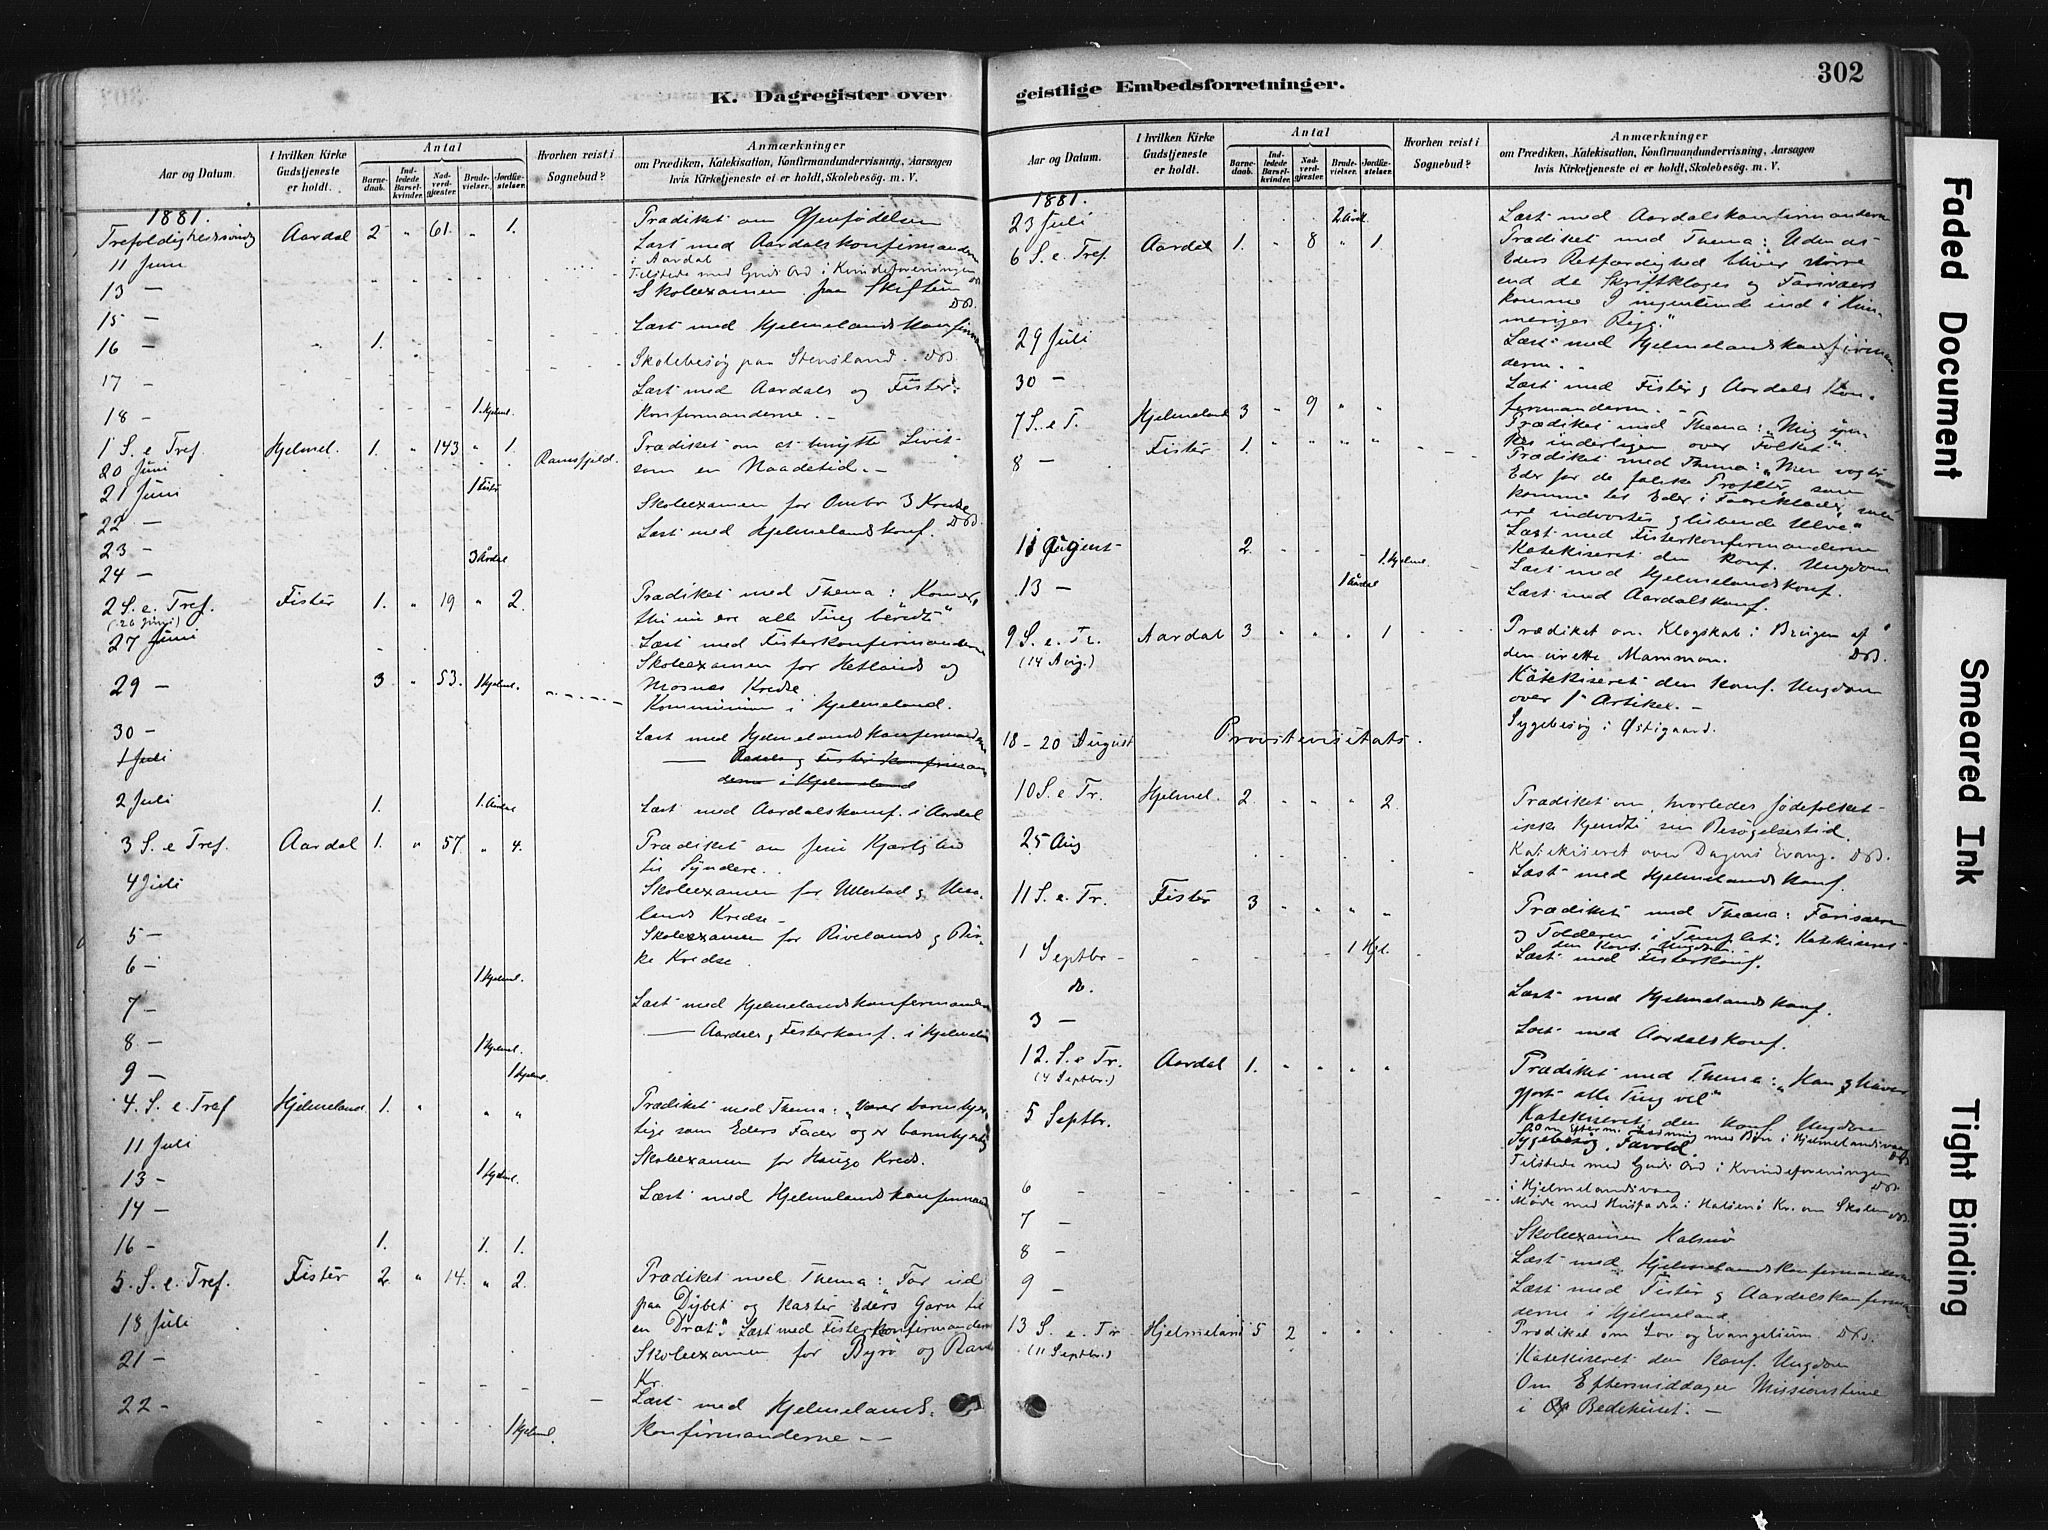 K. Dagregister over
Aar og Datum.
I hvilken Kirke Gudstjeneste er holdt.
Antal
Barne-daab.
Ind-ledede Barsel-kvinder.
Nad-verd-gjester.
Brude-vielser.
Jordfæ-stelser.
Hvorhen reist i Sognebud?
Anmærkninger
om Prædiken, Katekisation, Konfirmandundervisning, Aarsagen
hvis Kirketjeneste ei er holdt, Skolebesøg. m. V.
1881.
Trefoldighedssøndg Aardal 2 " 61. " 1. Prædiket om Gjenfødelsen
11 Juni Læst med Aardalskonfirmanderne
i Aardal
13 — Tilstede med Guds Ord i Kvindeforeningen
Skoleexamen paa Skiftun
15 —
16 — 1. Læst med Hjelmelandskonfirman
17 — Skolebesøg paa Stensland.
Læst med Aardals og Fister-
18 — 1 Hjelml. konfirmanderne. —
1 S. e Tref. Hjelmel. 1. " 143 " 1 Prædiket om at benytte Livet
20 Juni som en Naadetid. —
21 Juni 1 Fister
22 — Skoleexamen for Ombo 3 Kredse
23 — Læst med Hjelmelandskonf.
24 — 3 Årdal
2 S. e. Tref. Fister 1. " 19 " 2. Prædiket med Thema: Kommer,
(26 Juni) thi nu ere alle Ting beredt"
27 Juni Læst med Fisterkonfirmanderne
Skoleexamen for Hetlands og
29 — 3 " 53. 1 Hjelml. Mosnes Kredse.
Kommunion i Hjelmeland.
30 — Læst med Hjelmelandskonfirmanderne
1 Juli — Aardals og Fister konfirman
derne i Hjelmeland
2 Juli 1. 1. Årdal Læst med Aardalskonf. i Aardal
3 S. e Tref. Aardal 1. " 57. " 4. Prædiket om Jesu Kjærlighed
til Syndere.
4 Juli Skoleexamen for Ullestad og
lands Kredse —
5 — Skoleexamen for Rivelands og Bir-
ke Kredse.
6 — 1 Hjelml.
7 — Læst med Hjelmelandskonfirmanderne
8 — 1 Hjelml. — Aardals og Fisterkonf. i Hjelmeland
9 — 1 Hjelml.
4. S. e Tref Hjelmeland. 1. " " " Prædiket med Thema: „Værer barmhjer-
tige som Eders Fader og er barmhjertig
11 Juli Skoleexamen for Hauge Kreds.
13 — 1 Hjelml.
14 — Læst med Hjelmelandskonfirmand
16 — 1. 1. 1.
5. S. e. Tref. Fister 2. " 14. " 2. Prædiket med Thema: „Far ud
paa Dybet og kaster Eders Garn til
18 Juli en Dræt". Læst med Fisterkonfirmanderne
21 — Skoleexamen for Byrø og Rand
Kr.
22 — Læst med Hjelmelands.
1 Hjelml. Konfirmanderne —
geistlige Embedsforretninger.
302
Aar og Datum.
I hvilken Kirke Gudstjeneste er holdt.
Antal
Barne-daab.
Ind-ledede Barsel-kvinder.
Nad-verd-gjester.
Brude-vielser.
Jordfæ-stelser.
Hvorhen reist i Sognebud?
Anmærkninger
om Prædiken, Katekisation, Konfirmandundervisning, Aarsagen
hvis Kirketjeneste ei er holdt, Skolebesøg. m. V.
1881.
23 Juli 2 Årdl. Læst med Aardalskonfirmanderne
6 S. e. Tref. Aardal 1. " 8 " 1. Prædiket med Thema: Uden at
Eders Retfærdighed bliver større
end de Skriftkloges og Farisæers
komme I ingenlunde ind i Him-
meriges Rige."
29 Juli Læst med Hjelmelandskonfirman
derne.
30 — Læst med Fister og Aardals Kon-
firmanderne. —
7 S. e T. Hjelmeland 3 " 9 " " Prædiket med Thema: „Mig yn-
kes inderligen over Folket".
8 — Fister 1. " " " " Prædiket med Thema: „Men vogter
Eder for de falske Profeter, som
komme til Eder i Faareklæder, men
ere indvortes glubende Ulve."
Læst med Fisterkonfirmanderne
11 August 2. 1 Hjelml. Katekiseret den konf. Ungdom
Læst med Hjelmelandskonf.
13 — 1 Årdal Læst med Aardalskonf.
9 S. e. Tr. Aardal 3 " " " 1 Prædiket om Klogskab i Brugen af
(14 Aug.) den urette Mammon.
Katekiseret den konf. Ungdom
over 1ste Artikel. —
Sygebesøg i Østigaard.
18 – 20 August Provstevisitats.
10 S. e Tr. Hjelmel. 2. " " " 2. Prædiket om, hvorledes Jødefolket
ikke kjendte sin Besøgelsestid.
25 Aug Katekiseret over Dagens Evang.
Læst med Hjelmelandskonf.
11 S. e. Tr. Fister 3 " " " " Prædiket med Thema: Farisæeren
og Tolderen i Templet. Katekiseret
den konf. Ungdom.
1 Septbr. 1 Hjl. Læst med Fisterkonf.
do. Læst med Hjelmelandskonf.
3 — Læst med Aardalskonf.
12. S. e Tr. Aardal 1. " " " " Prædiket med Thema: „Han haver
(4 Septbr.) gjort alle Ting vel"
5 Septbr. Katekiseret den konf. Ungdom
Sygebesøg, Tavold.
Tilstede med Guds Ord i Kvindeforeningen
6 — i Hjelmelandsvaag
7 — Møde med Husfædre i Halsnø Kr. om Skolen
8 — Skoleexamen Halsnø
9 — Læst med Hjelmelandskonfirmanderne
Læst med Fister og Aardalskonfirman
derne i Hjelmeland.
13 S. e. Tr Hjelmeland 5 2 " " " Prædiket om Lov og Evangelium.
(11 Septbr.) Katekiseret den konf. Ungdom
Om Eftermiddagen Missionstime
i Bedehuset. —
Faded Document
Smeared Ink
Tight Binding